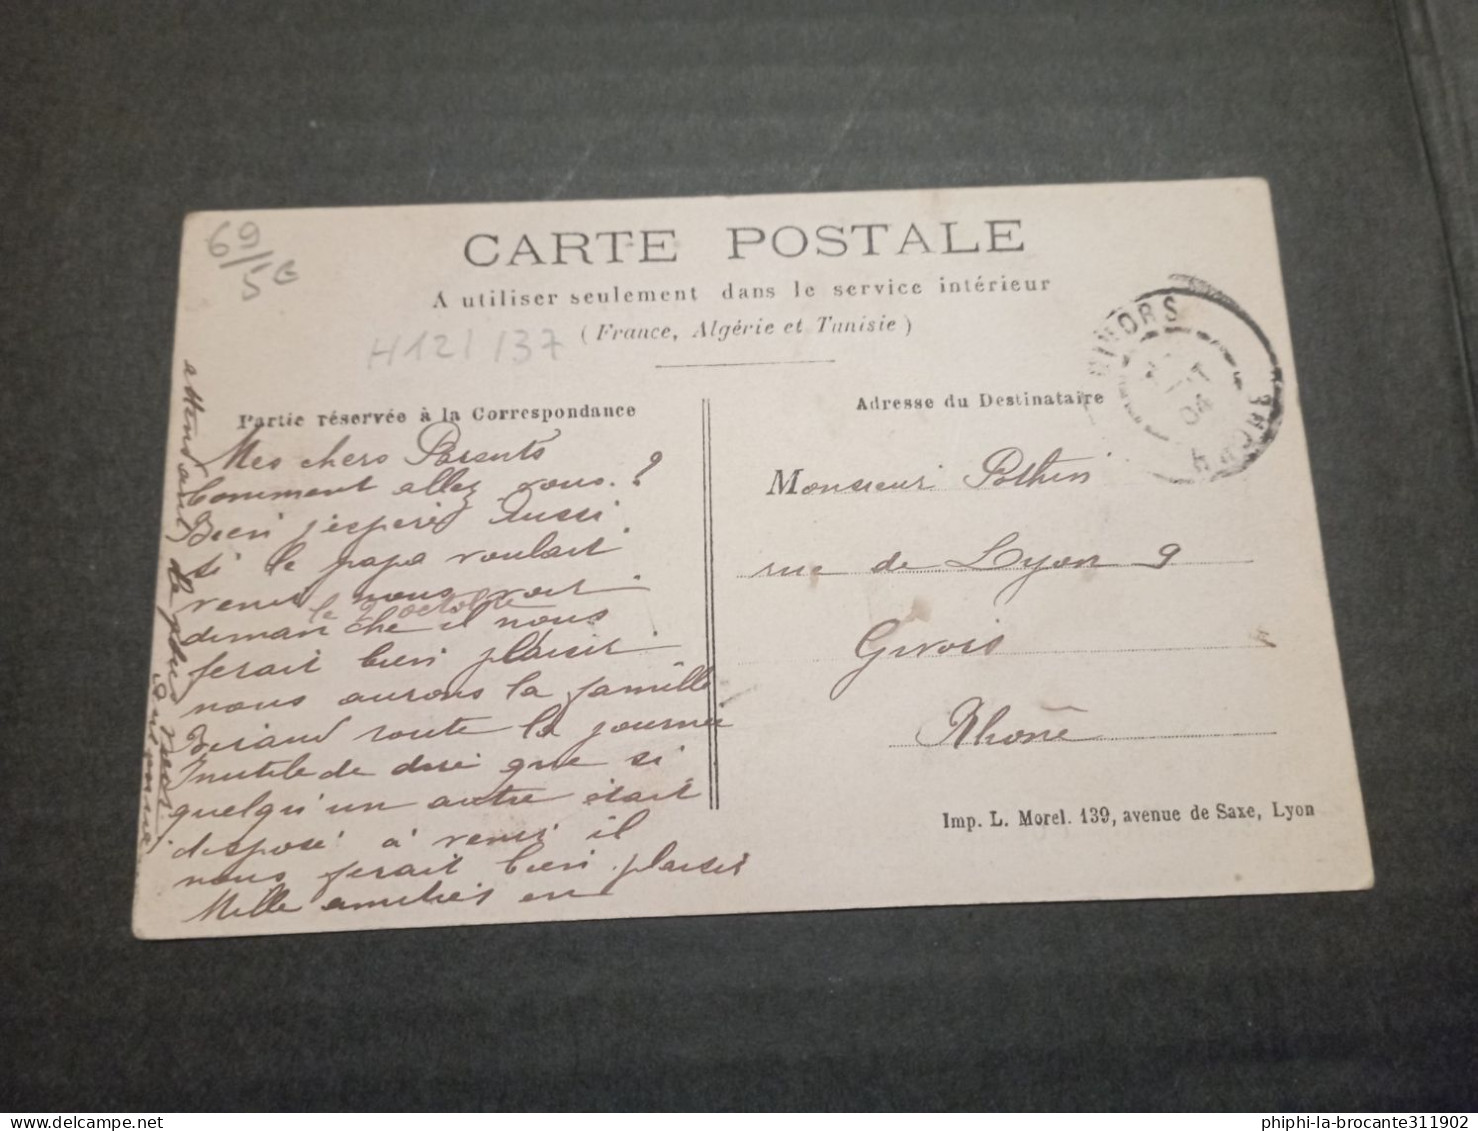 69/5€
CARTE POSTALE
A utiliser seulement dans le service intérieur
(France, Algérie et Tunisie)
H121/37
Partie réservée à la Correspondance
Mes chers Parents
Comment allez vous. ?
Bien j'espère Aussi
si le papa voulait
venir nous voir
le 2 octobre
dimanche il nous
ferait bien plaisir
nous aurons la famille
Biraud toute la journée
Inutile de dire que si
quelqu'un autre était
disposé à venir il
nous ferait bien plaisir
Mille amitiés en
attendant le plus
Adresse du Destinataire
Monsieur Pothin
rue de Lyon 9
Givors
Rhône
GIVORS
04
RHONE
Imp. L. Morel. 139, avenue de Saxe, Lyon
phiphi-la-brocante311902